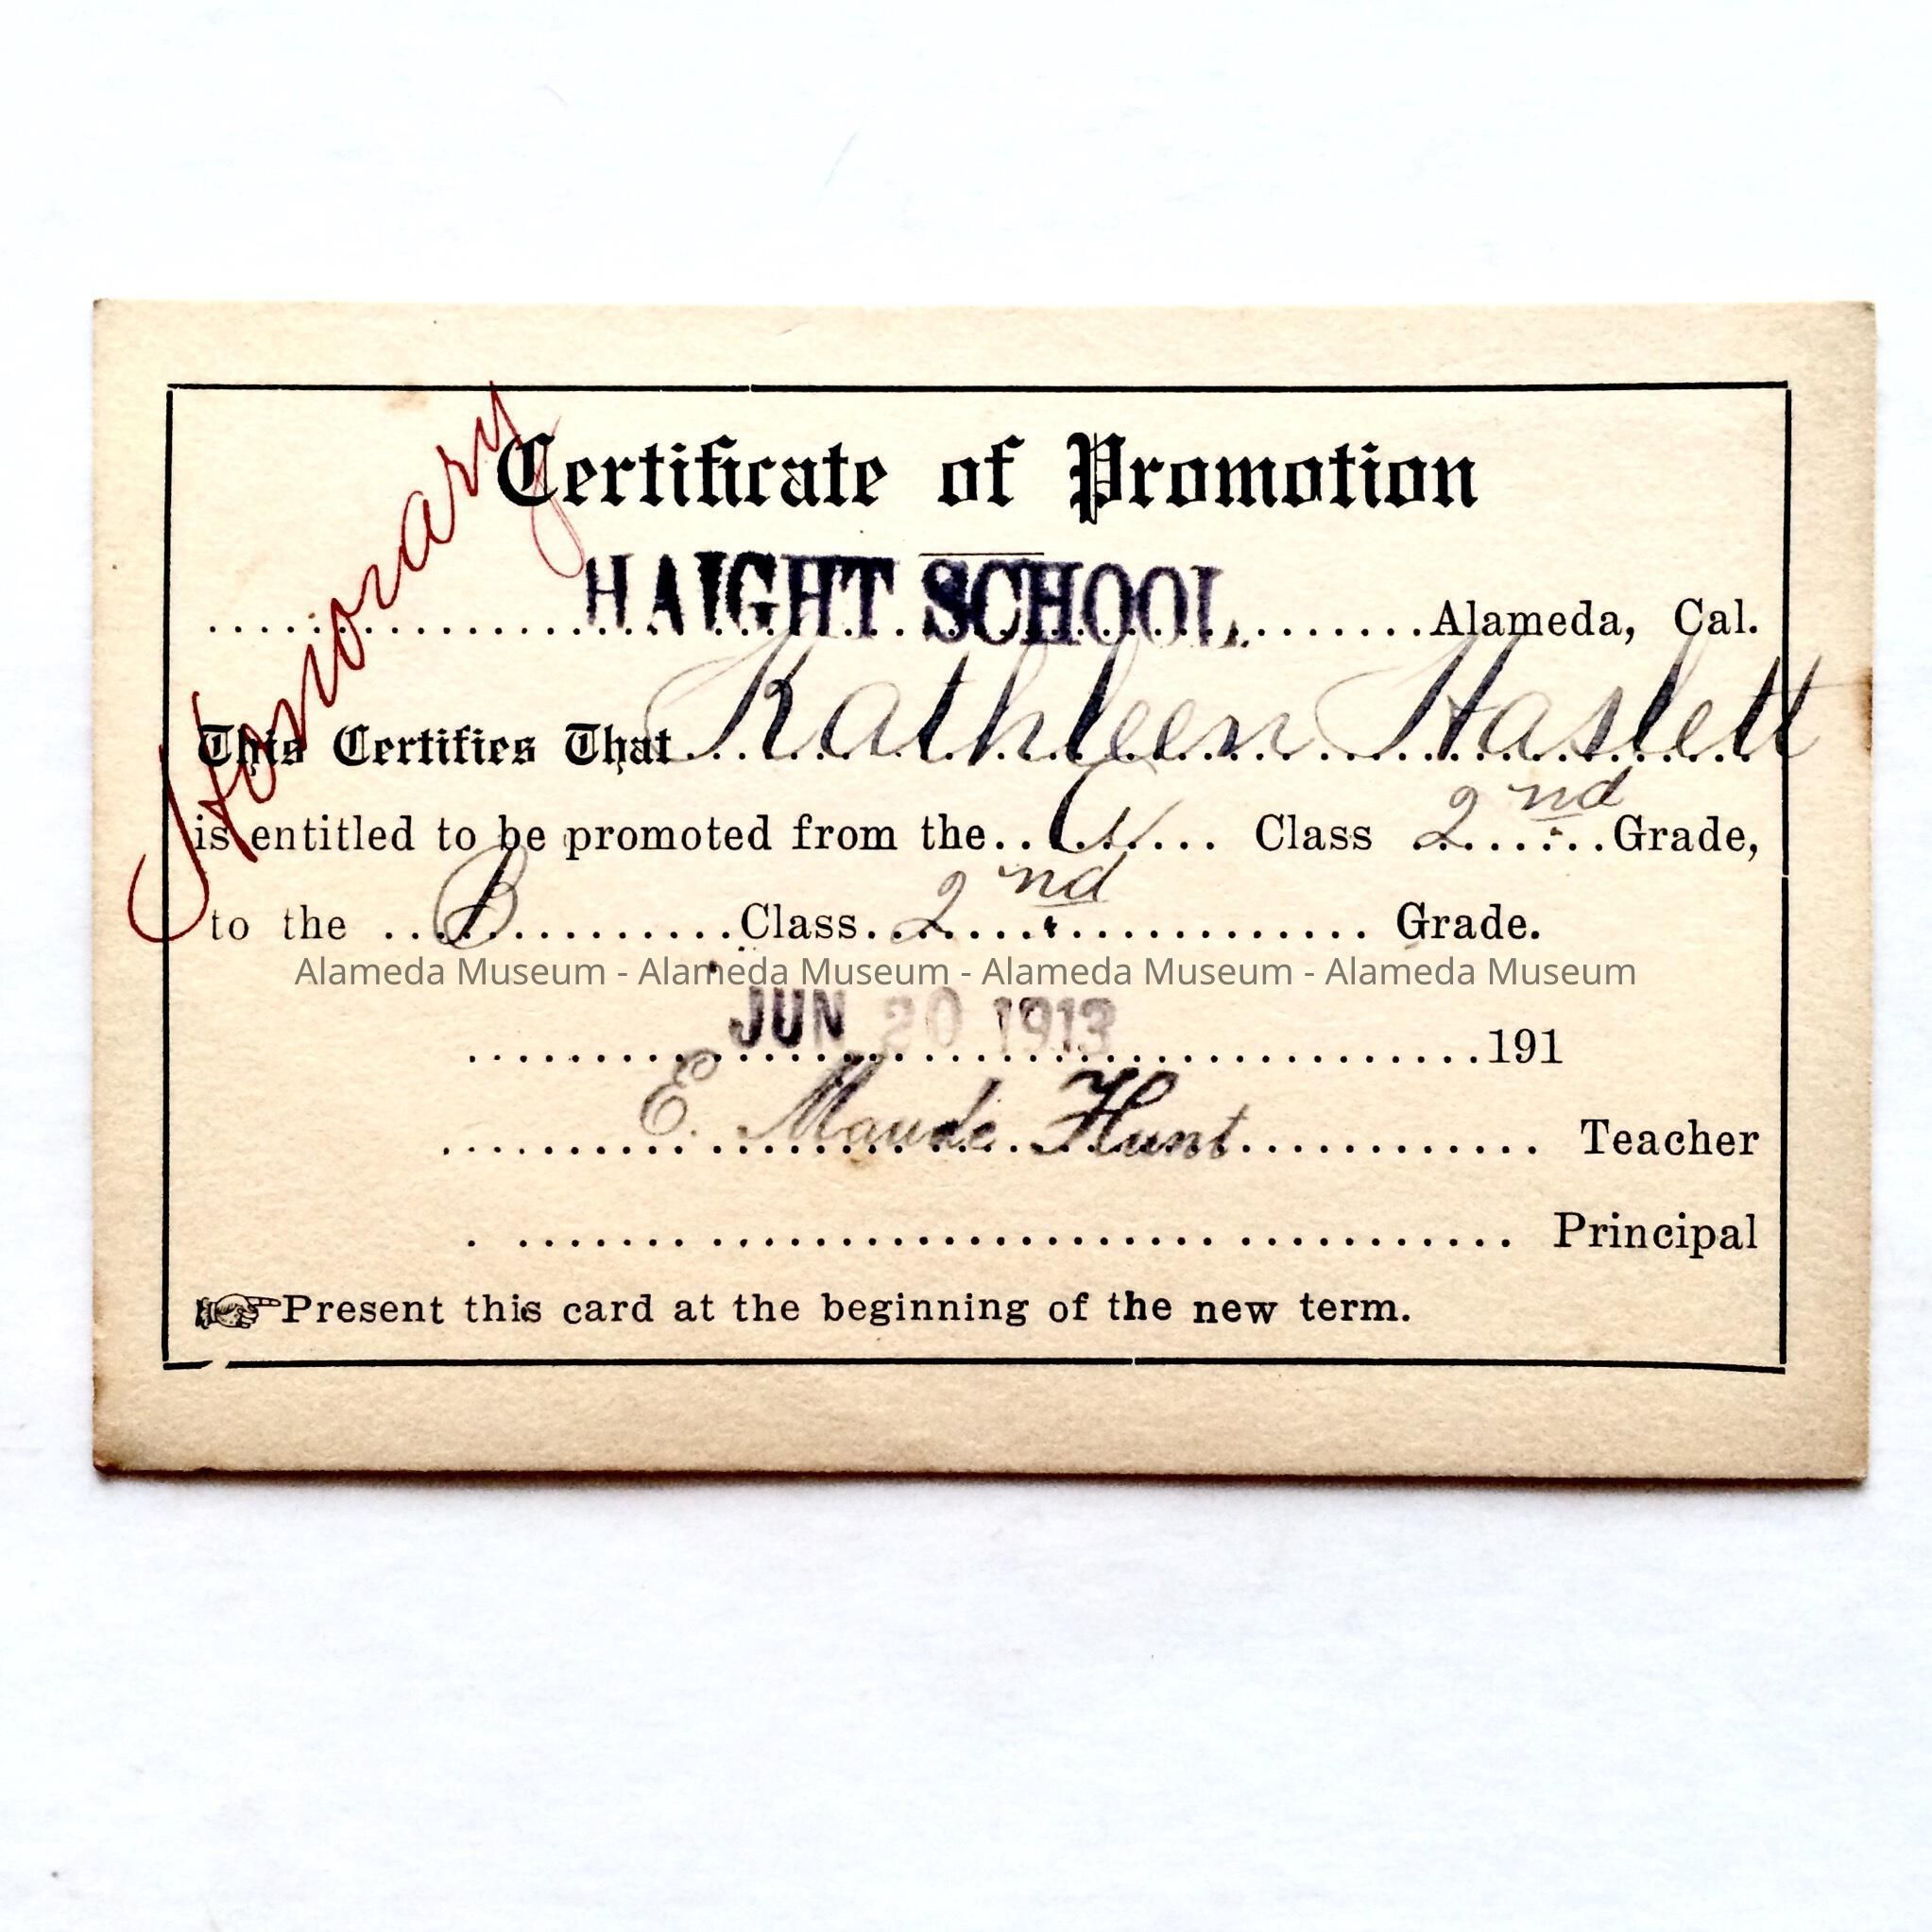 Honorary
Certificate of Promotion
HAIGHT SCHOOL, Alameda, Cal.
This Certifies That Kathleen Haslett
is entitled to be promoted from the Class 2nd Grade,
to the B Class 2nd Grade.
Alameda Museum - Alameda Museum - Alameda Museum - Alameda Museum
JUN 20 1913 191
E. Maude Hunt Teacher
Principal
☞Present this card at the beginning of the new term.